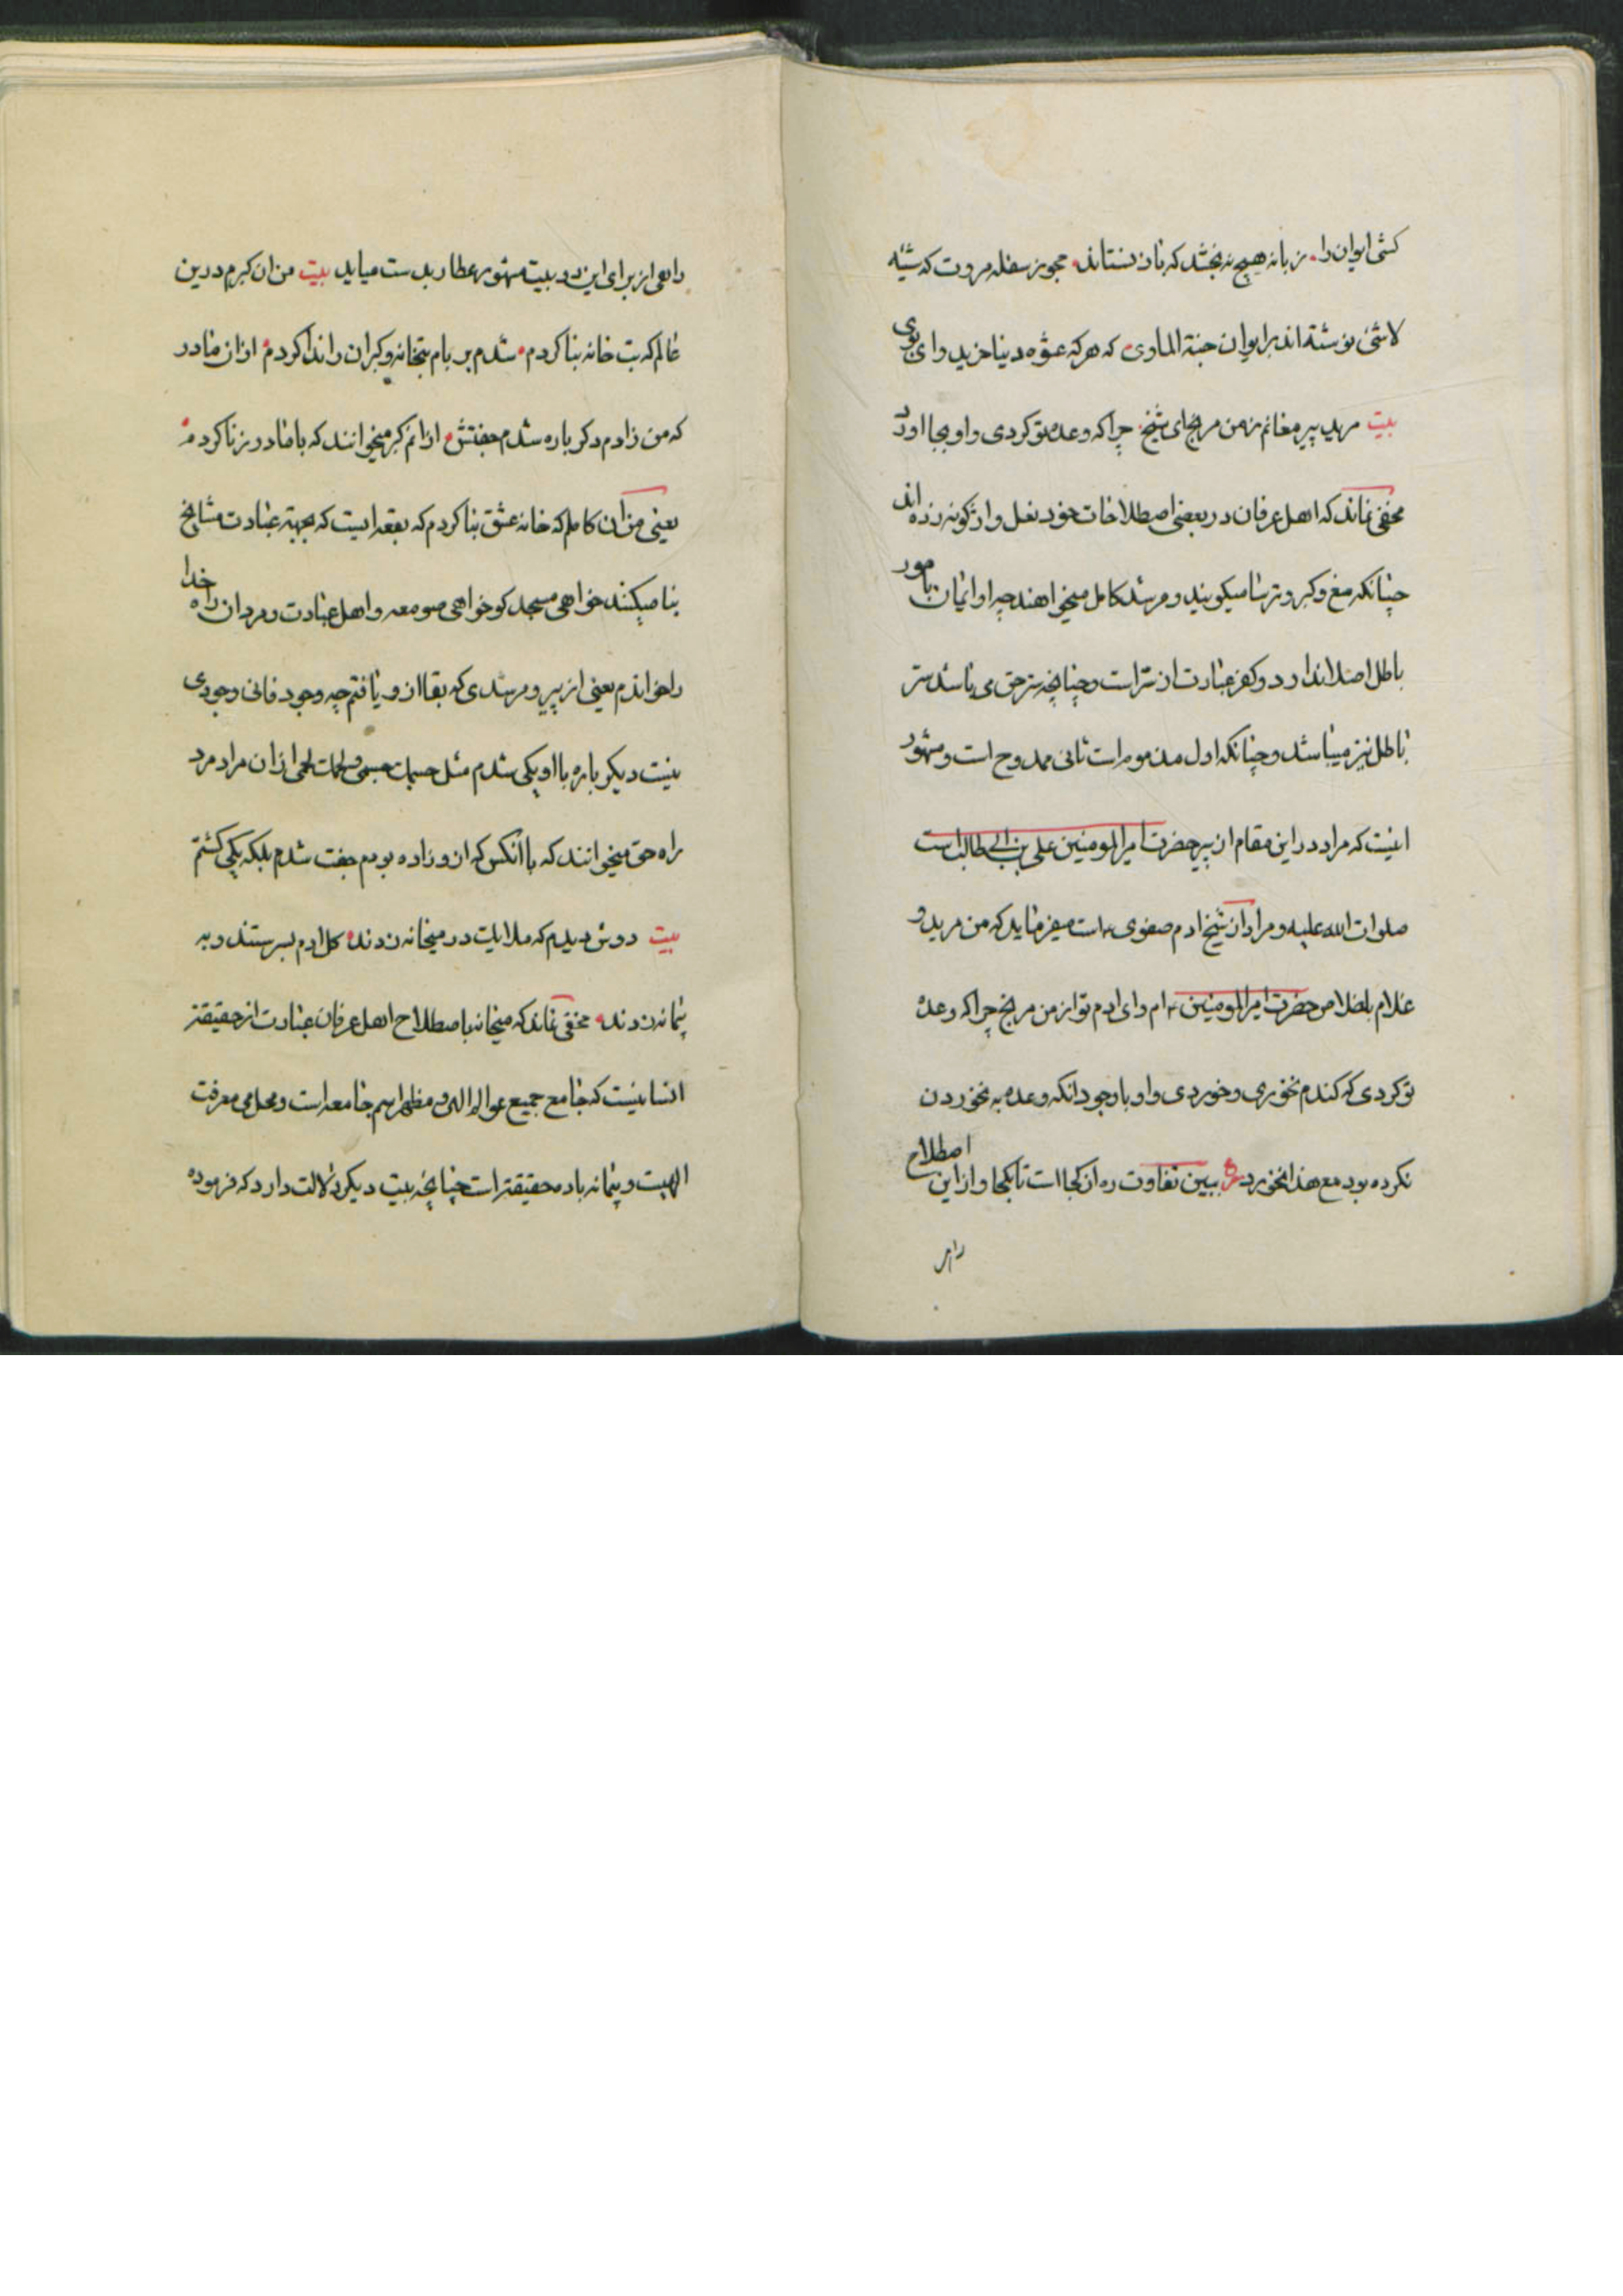 کشی ایوان را. زمانه هیچ نه بخشد که باز نستاند. مجو ز سفله مروت که شیئه
لاشئ نوشتة اند بر ایوان جنة الماوی که هر که عشوه دنیا خرید وای بوی
بیت مرید پیر مغانم ز من مرنج ای شیخ چرا که وعده تو کردی و او بجا اورد
مخفی نماند که اهل عرفان در بعضی اصطلاحات خود نعل واژکونه زده اند
چنانکه مغ و کبر و ترسا میکویند و مرشد کامل میخواهند چه او ایمان بامور
باطل اصلا ندارد و کفر عبارت از ستر است و چنانچه ستر حق می باشد ستر
باطل نیز میباشد و چنانکه اول مذموم است ثانی ممدوح است و مشهور
اینست که مراد در این مقام از پیر حضرت امیرالمومنین علی بن ابی طالب است
صلوات الله علیه و مراد از شیخ ادم صفوی ع است میفرماید که من مرید و
غلام باخلاص حضرت امیرالمومنین ع ام و ای ادم تو از من مرنج چرا که وعده
تو کردی که کندم نخوری و خوردی و او با وجود انکه وعده به نخوردن
نکرده بود مع هذا نخورد ع ببین تفاوت ره از کجا است تا بکجا و از این اصطلاح
راهی از برای این دو بیت مشهور عطار بدست میاید بیت من ان کبرم درین
عالم که بت خانه بنا کردم. شدم بر بام بتخانه و کبران را ندا کردم. ازان مادر
که من زادم دکر باره شدم جفتش. ازانم کبر میخوانند که با مادر زنا کردم.
یعنی من ان کاملم که خانه عشق بنا کردم که بقعه ایست که بجهته عبادت مشایخ
بنا میکنند خواهی مسجد کو خواهی صومعه و اهل عبادت و مردان راه خدا
را خواندم یعنی از پیر و مرشدی که بقا از و یافتم چه وجود فانی وجودی
نیست دیکر باره با او یکی شدم مثل جسمک جسمی و لحمک لحمی ازان مراد مرد
راه حق میخوانند که با انکس که ازو زاده بودم جفت شدم بلکه یکی کشتم
بیت دوش دیدم که ملایک در میخانه زدند. کل ادم بسرستند و به
پیمانه زدند. مخفی نماند که میخانه باصطلاح اهل عرفان عبارت از حقیقة
انسانیست که جامع جمیع عوالم الهی و مظهر اسم جامعه است و محل می معرفت
الهیست و پیمانه باده حقیقة است چنانچه بیت دیکر دلالت دارد که فرموده